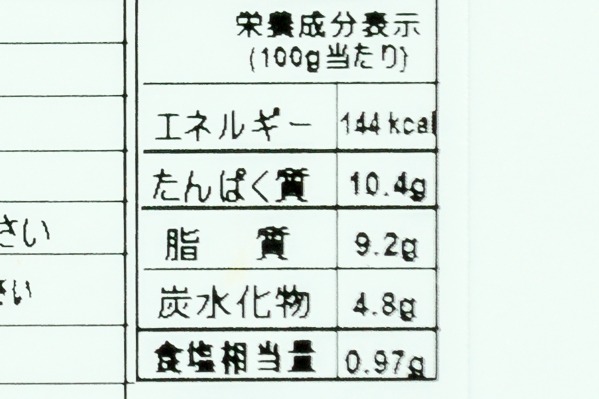 栄養成分表示
(100g当たり)
エネルギー 144 kcal
たんぱく質 10.4g
脂 質 9.2g
炭水化物 4.8g
食塩相当量 0.97g
さい
さい